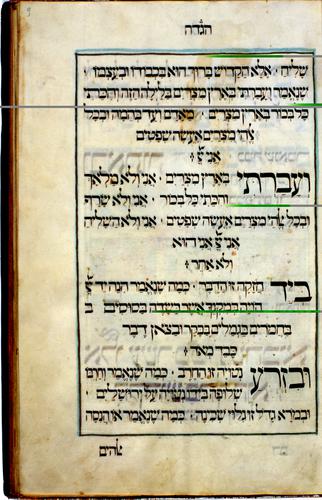 הגדה
שליח · אלא הקדוש ברוך הוא בכבודו ובעצמו
שנאמר ועברתי בארץ מצרים בלילה הזה והכתי
כל בכור בארץ מצרים · מאדם ועד בהמה ובכל
אלהי מצרים אעשה שפטים
אני יי׃
ועברתי בארץ מצרים · אני ולא מלאך
והכתי כל בכור · אני ולא שרף
ובכל אלהי מצרים אעשה שפטים · אני ולא השליח
אני יי אני הוא
ולא אחר׃
ביד חזקה זו הדבר · כמה שנאמר הנה יד יי
הויה במקנך אשר בשדה בסוסים
בחמרים בגמלים בבקר ובצאן דבר
כבד מאד׃
ובזרע נטויה זו החרב · כמה שנאמר וחרבו
שלופה בידו נטויה על ירושלים ·
ובמרא גדול זו גלוי שכינה · כמה שנאמר או הנסה
אלהים